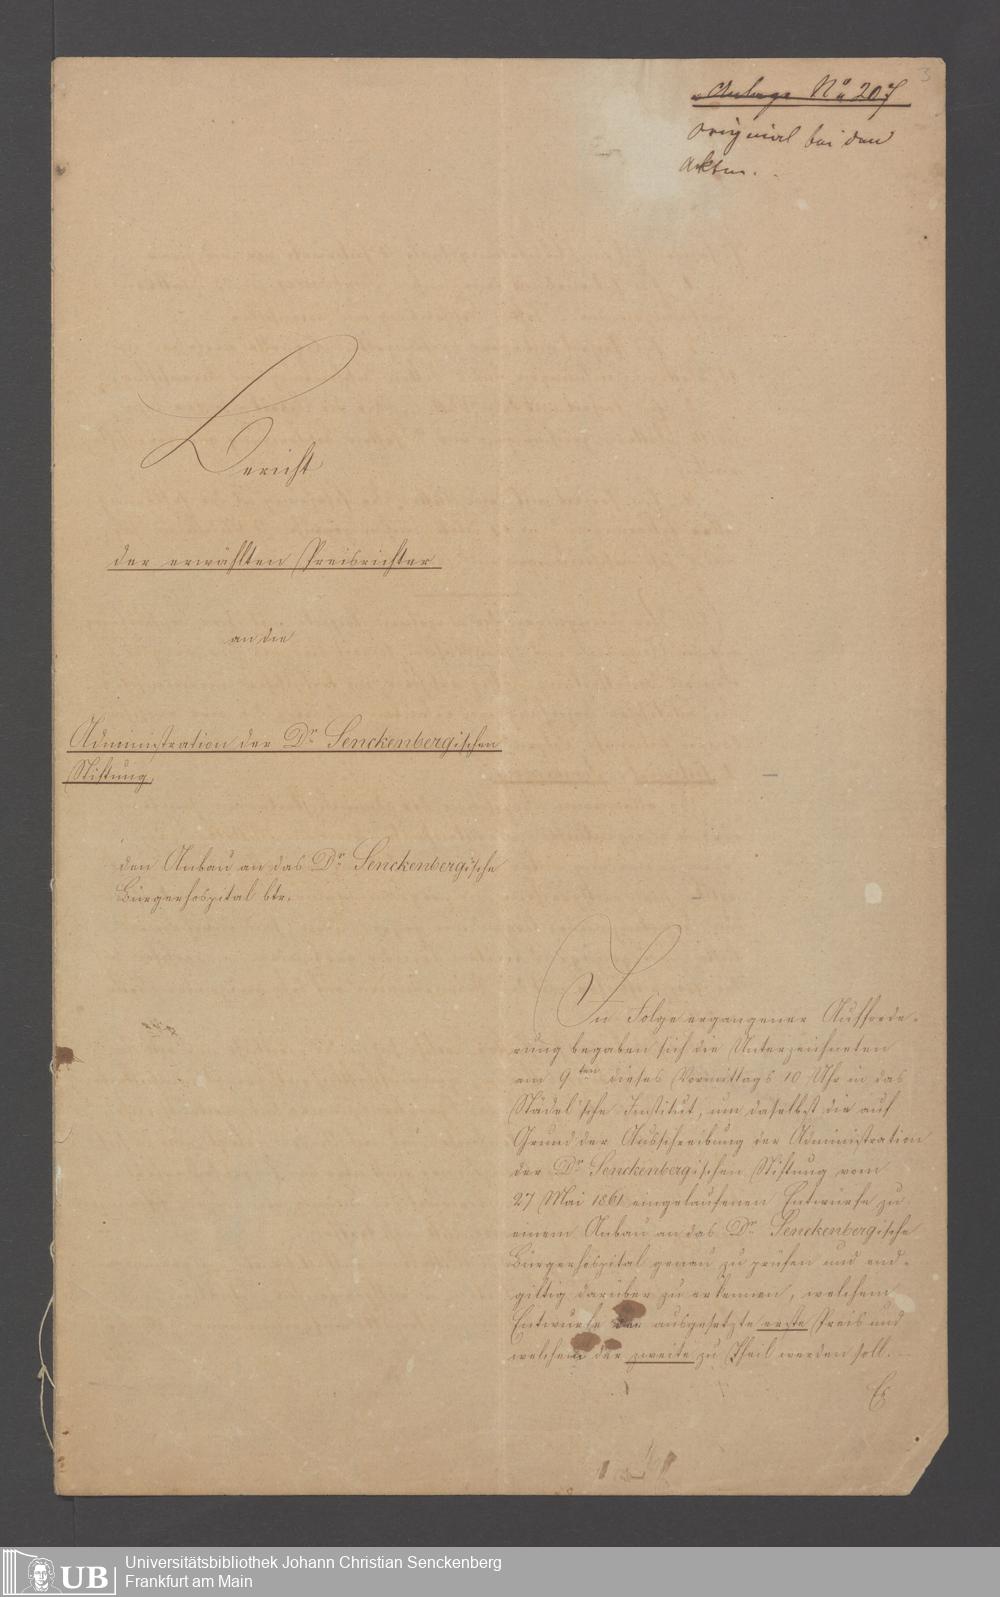 3
Anlage No 207
original bei den
Akten.
Bericht
der erwählten Preisrichter
an die
Administration der Dr. Senckenbergischen
Stiftung,
den Anbau an das Dr. Senckenbergische
Bürgerhospital btr.
In Folge ergangener Aufforde-
rung begaben sich die Unterzeichneten
am 9ten dieses Vormittags 10 Uhr in das
Städel'sche Institut, um daselbst die auf
Grund der Ausschreibung der Administration
der Dr. Senckenbergischen Stiftung vom
27 Mai 1861 eingelaufenen Entwürfe zu
einem Anbau an das Dr. Senckenbergische
Bürgerhospital genau zu prüfen und end-
giltig darüber zu erkennen, welchem
Entwurfe der ausgesetzte erste Preis und
welchem der zweite zu Theil werden soll. —
Es
UB
Universitätsbibliothek Johann Christian Senckenberg
Frankfurt am Main